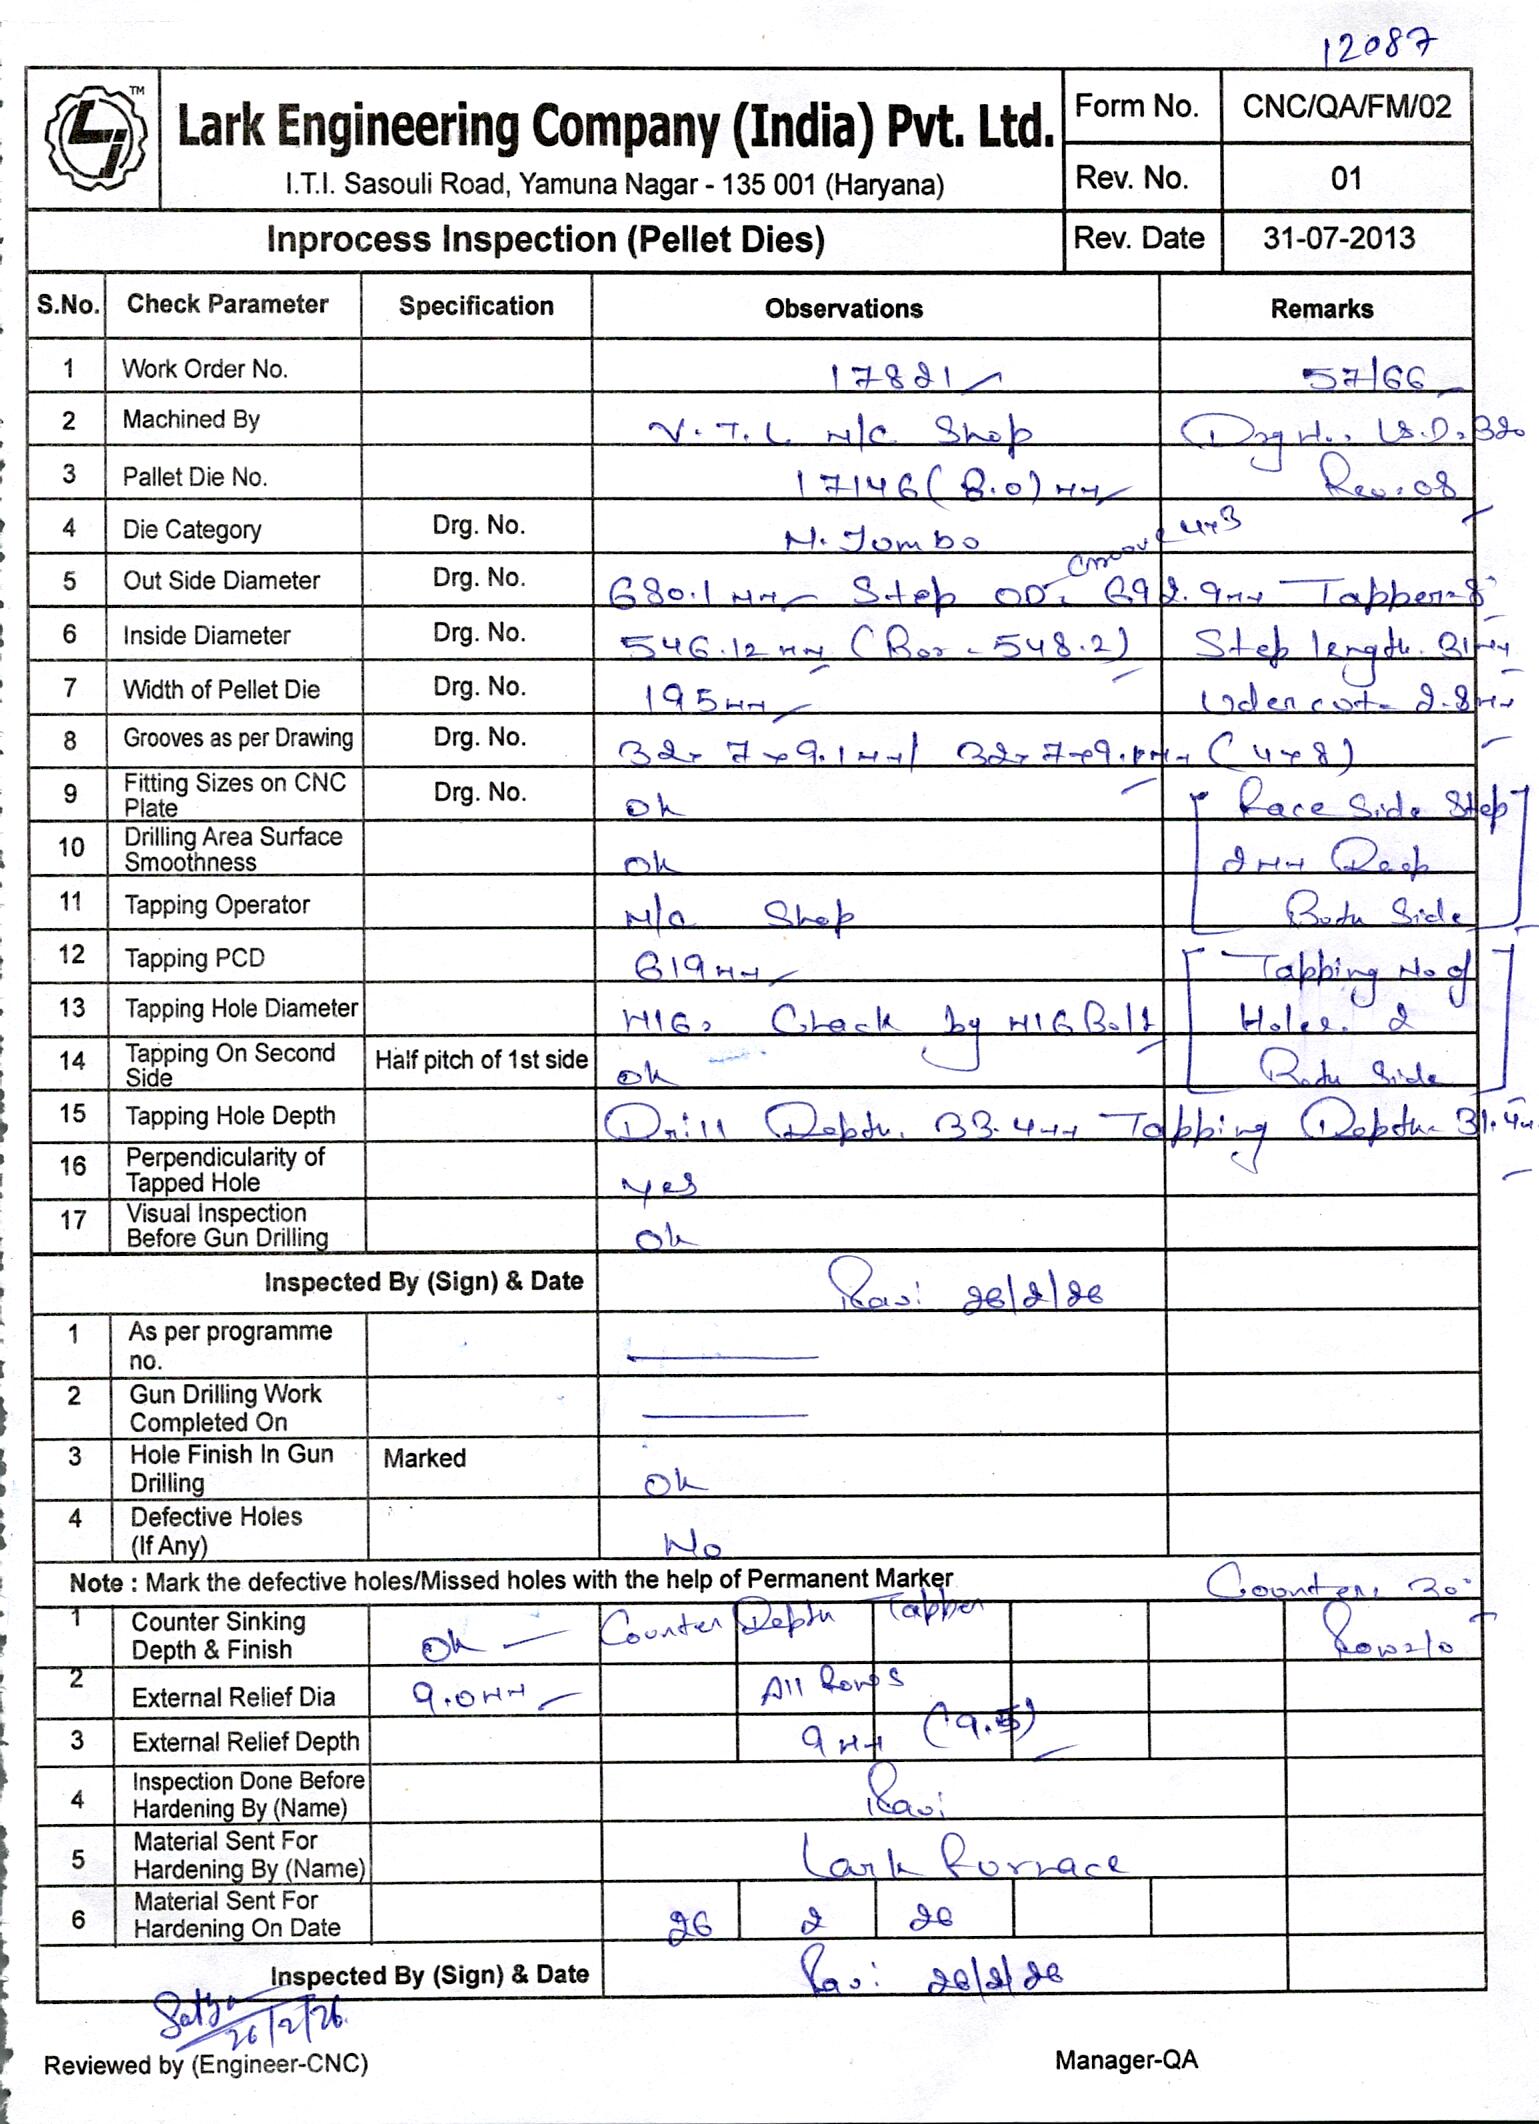 12087
TM
Lark Engineering Company (India) Pvt. Ltd.
I.T.I. Sasouli Road, Yamuna Nagar - 135 001 (Haryana)
Form No. CNC/QA/FM/02
Rev. No. 01
Inprocess Inspection (Pellet Dies)
Rev. Date 31-07-2013
S.No. Check Parameter Specification Observations Remarks
1 Work Order No. 17821 57/66
2 Machined By V.T.L M/C Shop
3 Pallet Die No. 17146 (8.0) mm Rev: 08
4 Die Category Drg. No. M. Jumbo
Groove 4x3
5 Out Side Diameter Drg. No. 680.1 mm Step OD. 692.9mm Tapper-8°
6 Inside Diameter Drg. No. 546.12 mm (Bor - 548.2) Step length. 31mm
7 Width of Pellet Die Drg. No. 195mm Udercut- 2.8mm
8 Grooves as per Drawing Drg. No. 32x 7x9.1mm/ 32x7x9.1mm (4x8)
9 Fitting Sizes on CNC Plate Drg. No. Ok Race Side Step
10 Drilling Area Surface Smoothness Ok 2mm Deep
11 Tapping Operator M/C Shop Both Side
12 Tapping PCD 619mm Tapping No of
13 Tapping Hole Diameter M16, Check by M16 Bolt Holes. 2
14 Tapping On Second Side Half pitch of 1st side Ok Both Side
15 Tapping Hole Depth Drill Depth. 33.4mm Tapping Depth- 31.4
16 Perpendicularity of Tapped Hole yes
17 Visual Inspection Before Gun Drilling Ok
Inspected By (Sign) & Date Ravi 26/2/26
1 As per programme no.
2 Gun Drilling Work Completed On
3 Hole Finish In Gun Drilling Marked Ok
4 Defective Holes (If Any) No
Note : Mark the defective holes/Missed holes with the help of Permanent Marker Counter. 30°
1 Counter Sinking Depth & Finish Ok Counter Depth Tapper
2 External Relief Dia 9.0mm All Rows
3 External Relief Depth 9mm (9.5)
4 Inspection Done Before Hardening By (Name) Ravi
5 Material Sent For Hardening By (Name) Lark Furnace
6 Material Sent For Hardening On Date 26 2 26
Inspected By (Sign) & Date Ravi 26/2/26
26/2/26
Reviewed by (Engineer-CNC) Manager-QA